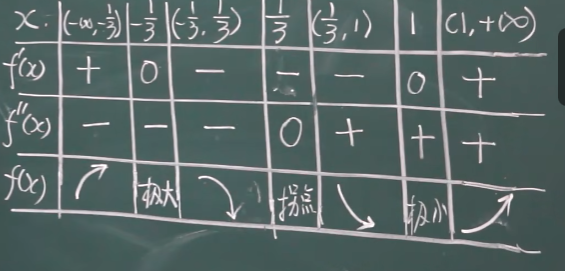 x. (-∞,-1/3) -1/3 (-1/3,1/3) 1/3 (1/3,1) 1 (1,+∞)
f'(x) + 0 - - - 0 +
f''(x) - - - 0 + + +
f(x) ↗ 极大 ↘ 拐点 ↘ 极小 ↗